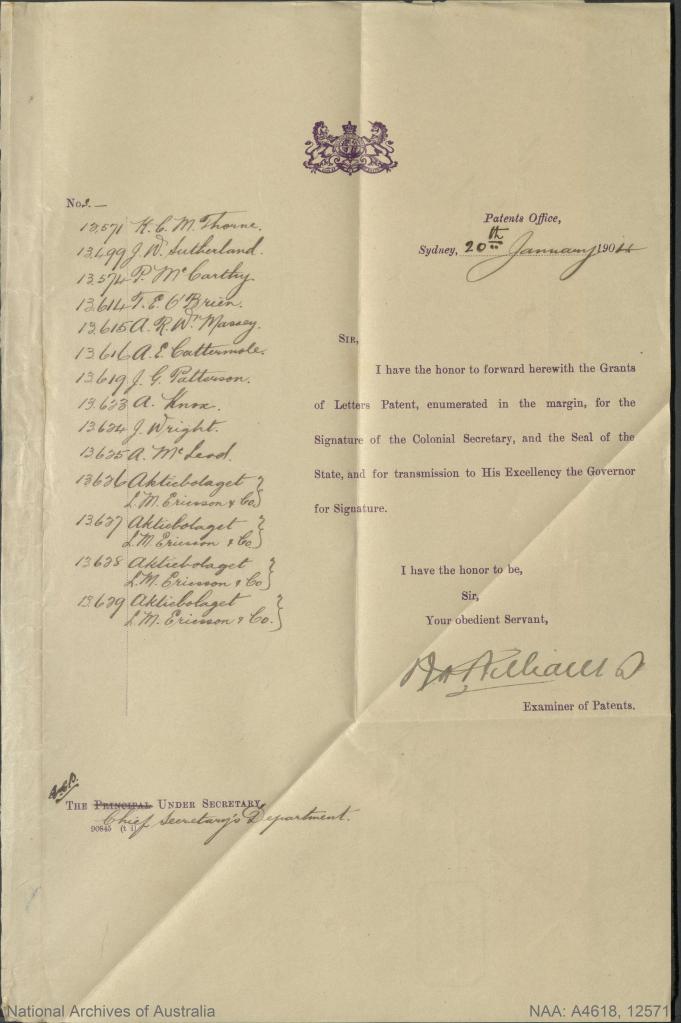 No. 2.—
12,571 H. C. M. Thorne.
13,499 J. W. Sutherland.
13,574 P. McCarthy
13,614 T. E. O'Brien.
13,615 A. R. Wm Massey.
13,616 A. E. Cattermole.
13,619 J. G. Patterson.
13,623 A. Knox.
13,624 J. Wright.
13,625 A. McLeod.
13,626 Aktiebolaget
L. M. Ericsson & Co
13,627 Aktiebolaget
L. M. Ericsson & Co
13,628 Aktiebolaget
L. M. Ericsson & Co
13,629 Aktiebolaget
L. M. Ericsson & Co.
Patents Office,
Sydney, 20th January 190
SIR,
I have the honor to forward herewith the Grants
of Letters Patent, enumerated in the margin, for the
Signature of the Colonial Secretary, and the Seal of the
State, and for transmission to His Excellency the Governor
for Signature.
I have the honor to be,
Sir,
Your obedient Servant,
Williams
Examiner of Patents.
THE PRINCIPAL UNDER SECRETARY,
Chief Secretary's Department.
90845
National Archives of Australia
NAA: A4618, 12571